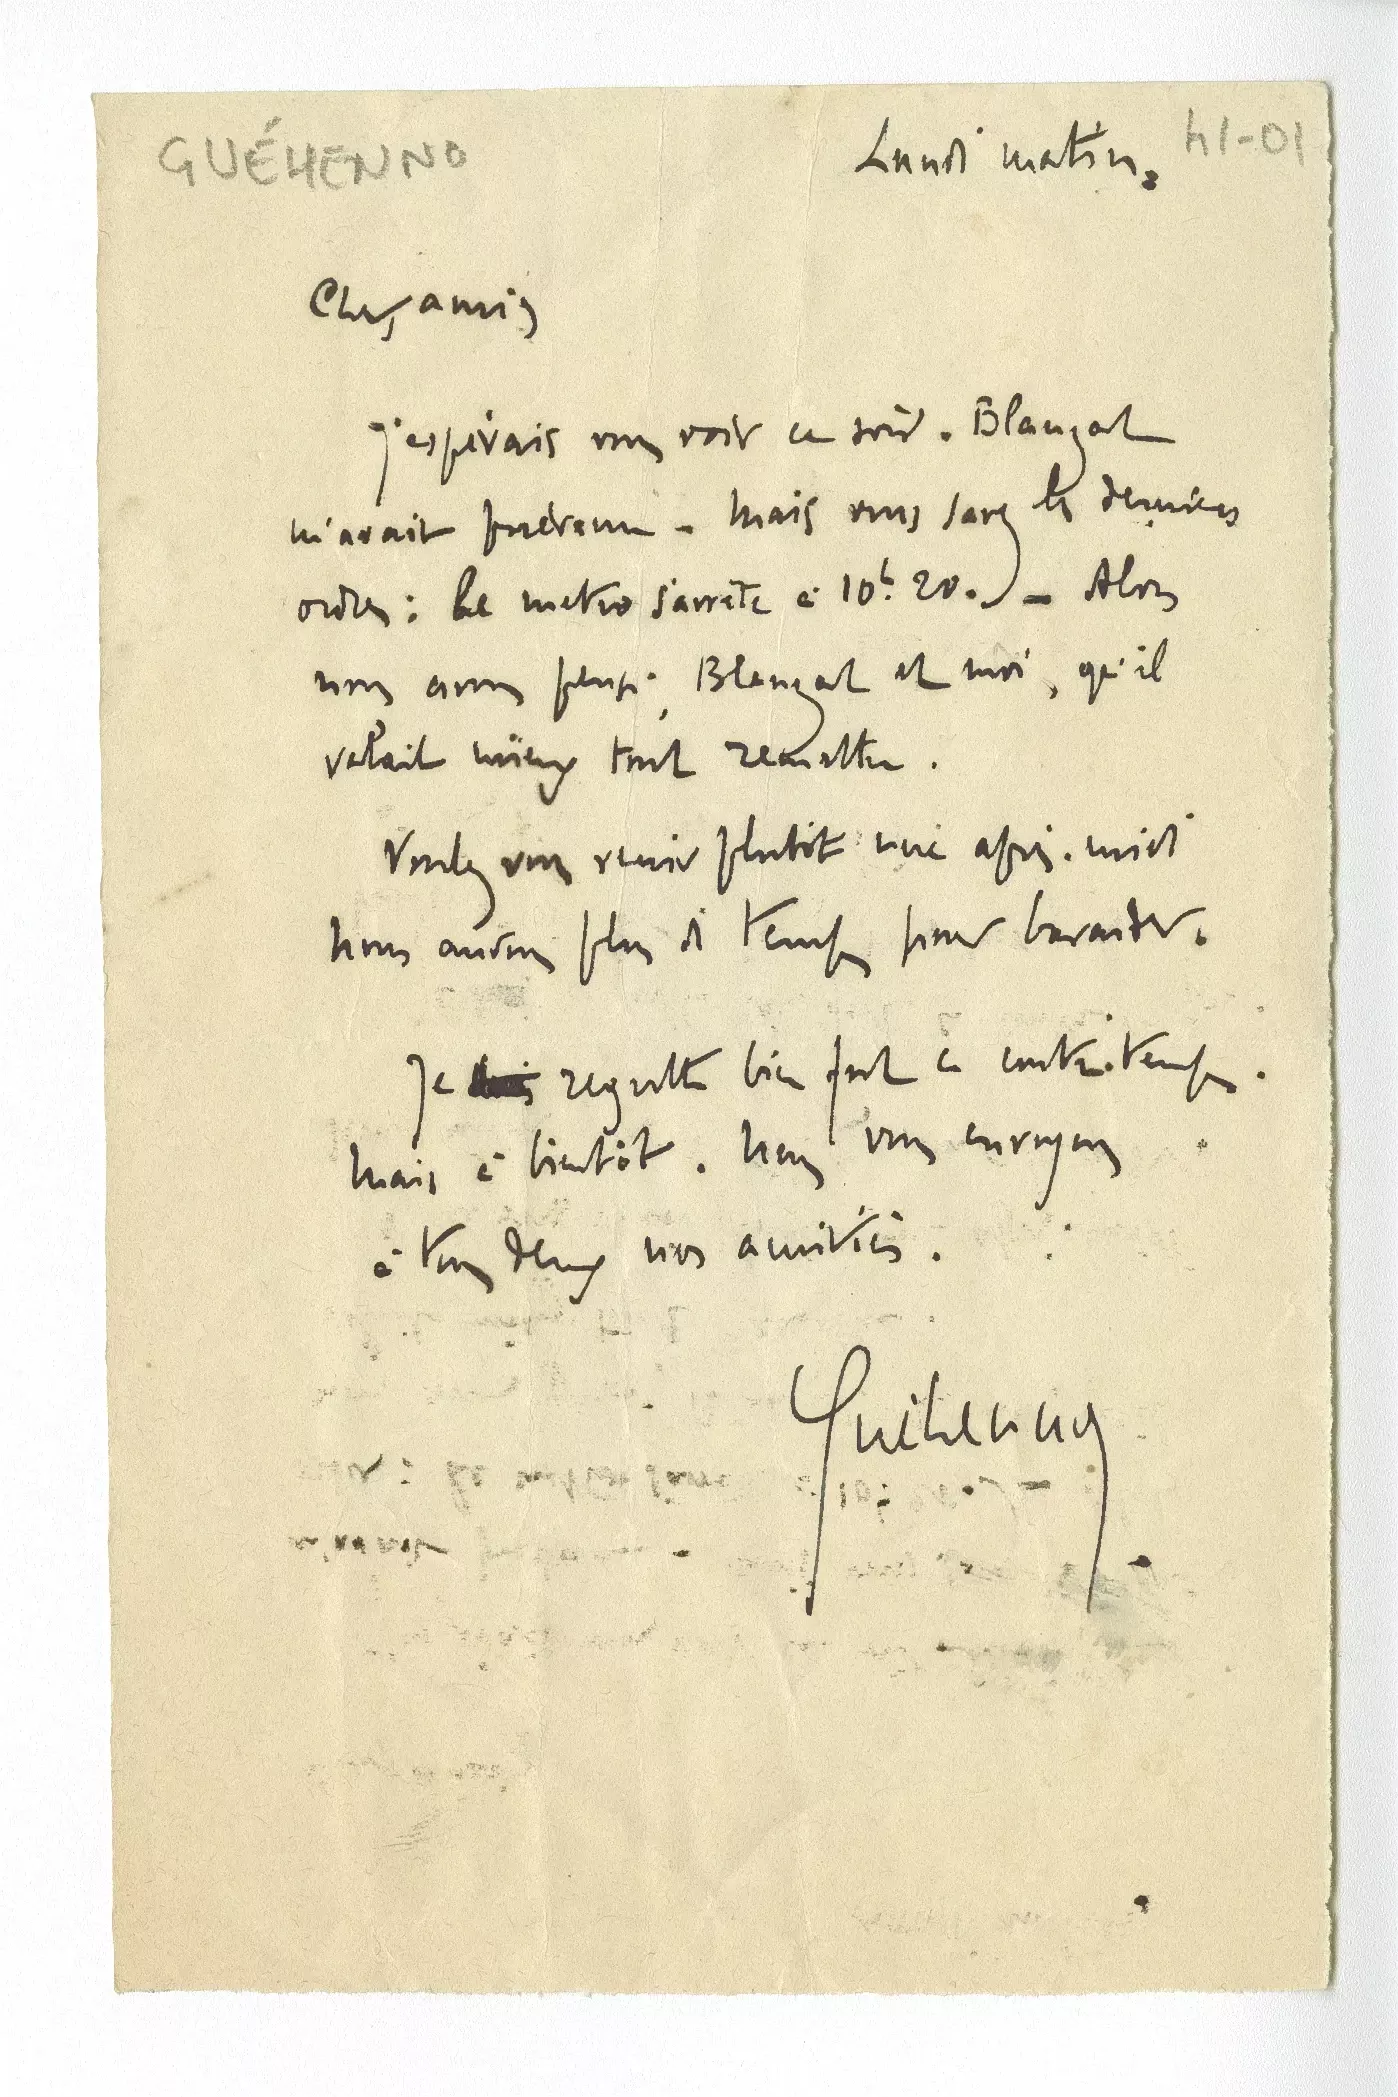 GUÉHENNO
Lundi matin.
41-01
Chers amis
J'espérais vous voir ce soir. Blanzat
m'avait prévenu - Mais vous savez les derniers
ordres : Le metro s'arrête à 10h 20. - Alors
nous avons pensé, Blanzat et moi, qu'il
valait mieux tout remettre.
Voulez vous venir plutôt une après-midi
Nous aurons plus de temps pour bavarder.
Je regrette bien fort ce contre-temps.
Mais à bientôt. Nous vous envoyons
à tous deux nos amitiés.
Guéhenno